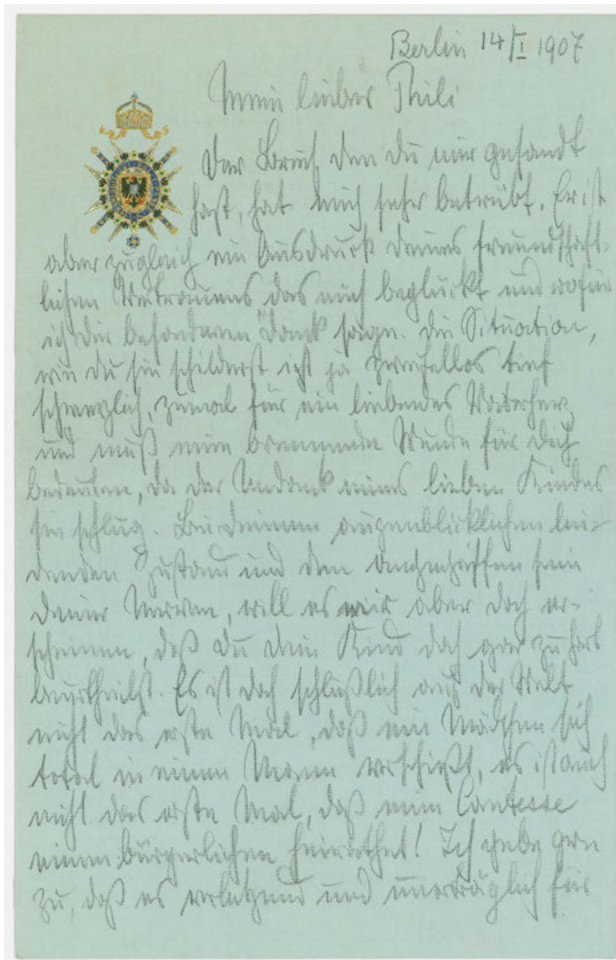 Berlin 14/I 1907
Mein lieber Phili
Der Brief, den du mir gesandt
hast, hat mich sehr betrübt. Er ist
aber zugleich ein Ausdruck deines freundschaft-
lichen Vertrauens das mich beglückt und wofür
ich dir besonderen Dank sage. Die Situation,
wie du sie schilderst ist ja zweifellos tief
schmerzlich, zumal für ein liebendes Vaterherz
und muß eine brennende Wunde für dich
bedeuten, da der Undank eines lieben Kindes
sie schlug. Bei deinem augenblicklichen lei-
denden Zustand und dem Angegriffen sein
deiner Nerven, will es mir aber doch er-
scheinen, daß du dein Kind doch gar zu hart
beurtheilst. Es ist doch schließlich auf der Welt
nicht das erste Mal, daß ein Mädchen sich
total in einen Mann verschießt, es ist auch
nicht das erste Mal, daß eine Contesse
einen bürgerlichen heirathet! Ich gebe gern
zu, daß es verletzend und unerträglich für